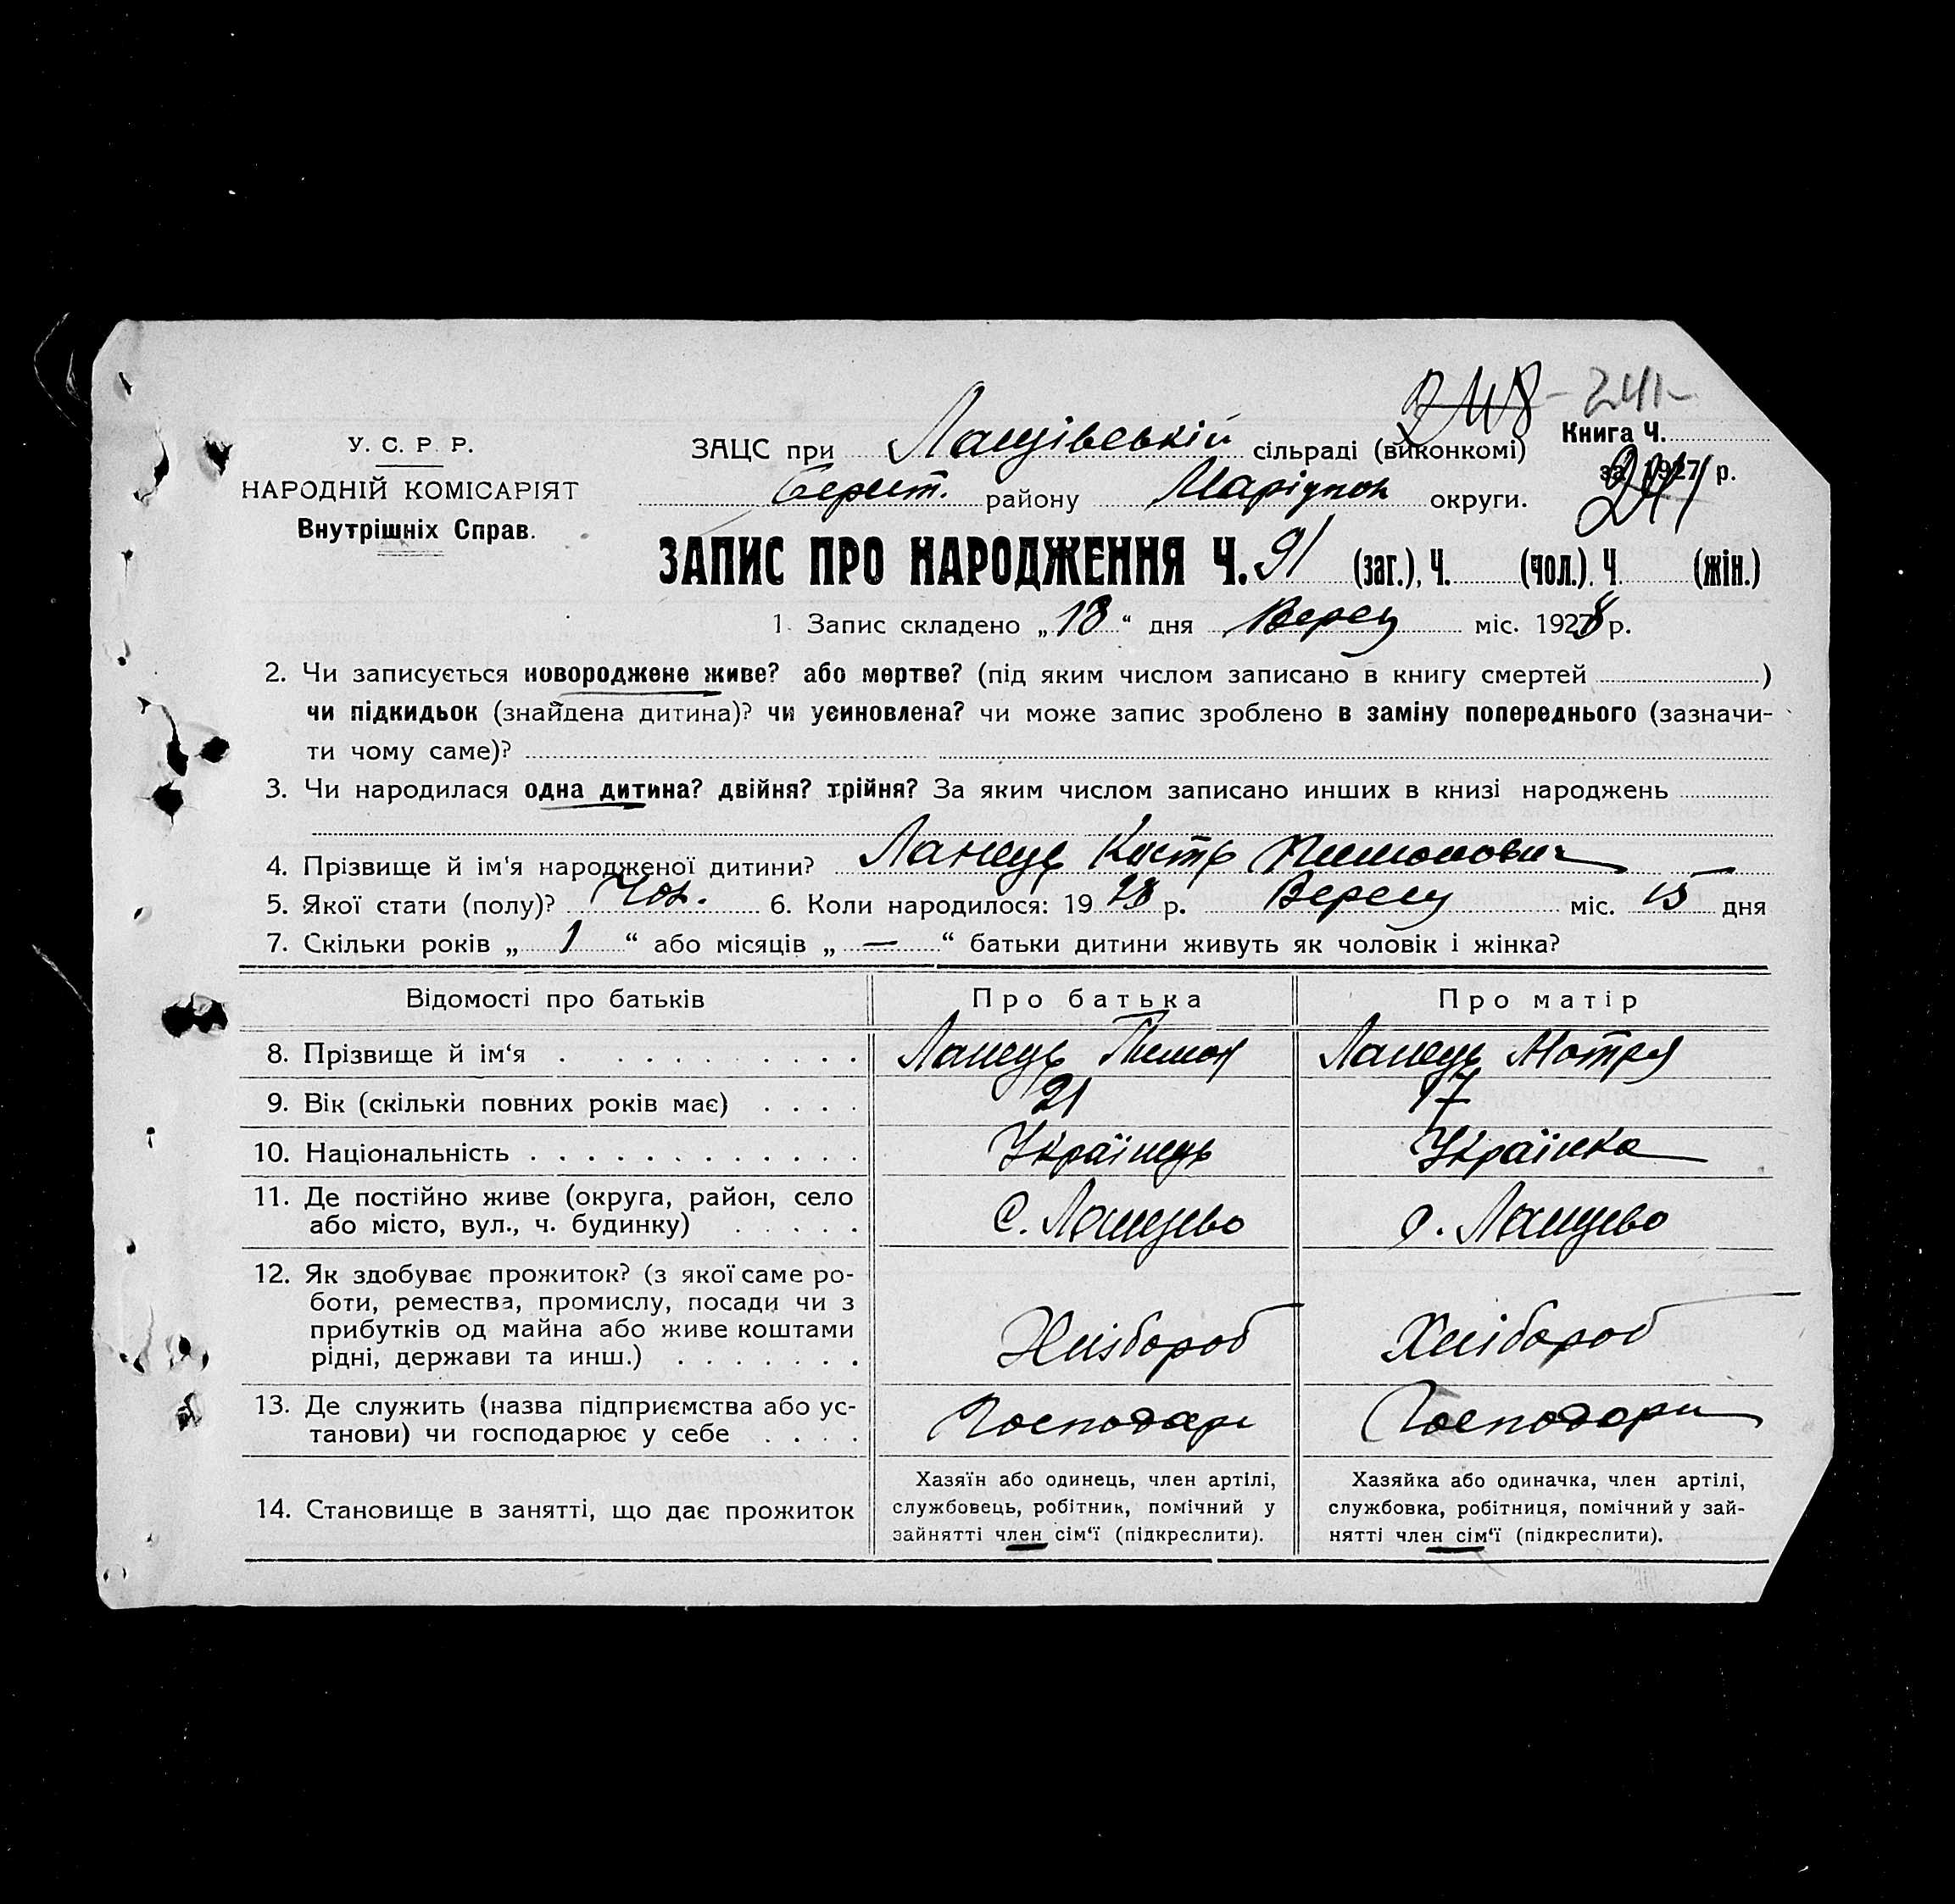 241
У. С. Р. Р.
НАРОДНІЙ КОМІСАРІЯТ
Внутрішніх Справ.
ЗАЦС при сільраді (виконкомі)
Книга Ч.
за 1927 р.
Берест. району Маріупол округи.
ЗАПИС ПРО НАРОДЖЕННЯ Ч. 91 (заг.), Ч. (чол.). Ч. (жін.)
1. Запис складено „18“ дня Верес міс. 1928 р.
2. Чи записується новороджене живе? або мертве? (під яким числом записано в книгу смертей )
чи підкидьок (знайдена дитина)? чи усиновлена? чи може запис зроблено в заміну попереднього (зазначи-
ти чому саме)?
3. Чи народилася одна дитина? двійня? трійня? За яким числом записано инших в книзі народжень
4. Прізвище й ім‘я народженої дитини? Пимонович
5. Якої стати (полу)? Чол. 6. Коли народилося: 1928 р. Вересн міс. 15 дня
7. Скільки років „ 1 “ або місяців „ — “ батьки дитини живуть як чоловік і жінка?
Відомості про батьків Про батька Про матір
8. Прізвище й ім‘я Пимон Мотря
9. Вік (скільки повних років має) 21 17
10. Національність Українець Українка
11. Де постійно живе (округа, район, село
або місто, вул., ч. будинку) с. с.
12. Як здобуває прожиток? (з якої саме ро-
боти, ремества, промислу, посади чи з
прибутків од майна або живе коштами
рідні, держави та инш.) Хлібороб Хлібороб
13. Де служить (назва підприємства або ус-
танови) чи господарює у себе Господарс Господарп
14. Становище в занятті, що дає прожиток
Хазяїн або одинець, член артілі,
службовець, робітник, помічний у
зайнятті член сім‘ї (підкреслити).
Хазяйка або одиначка, член артілі,
службовка, робітниця, помічний у зай-
нятті член сім‘ї (підкреслити).